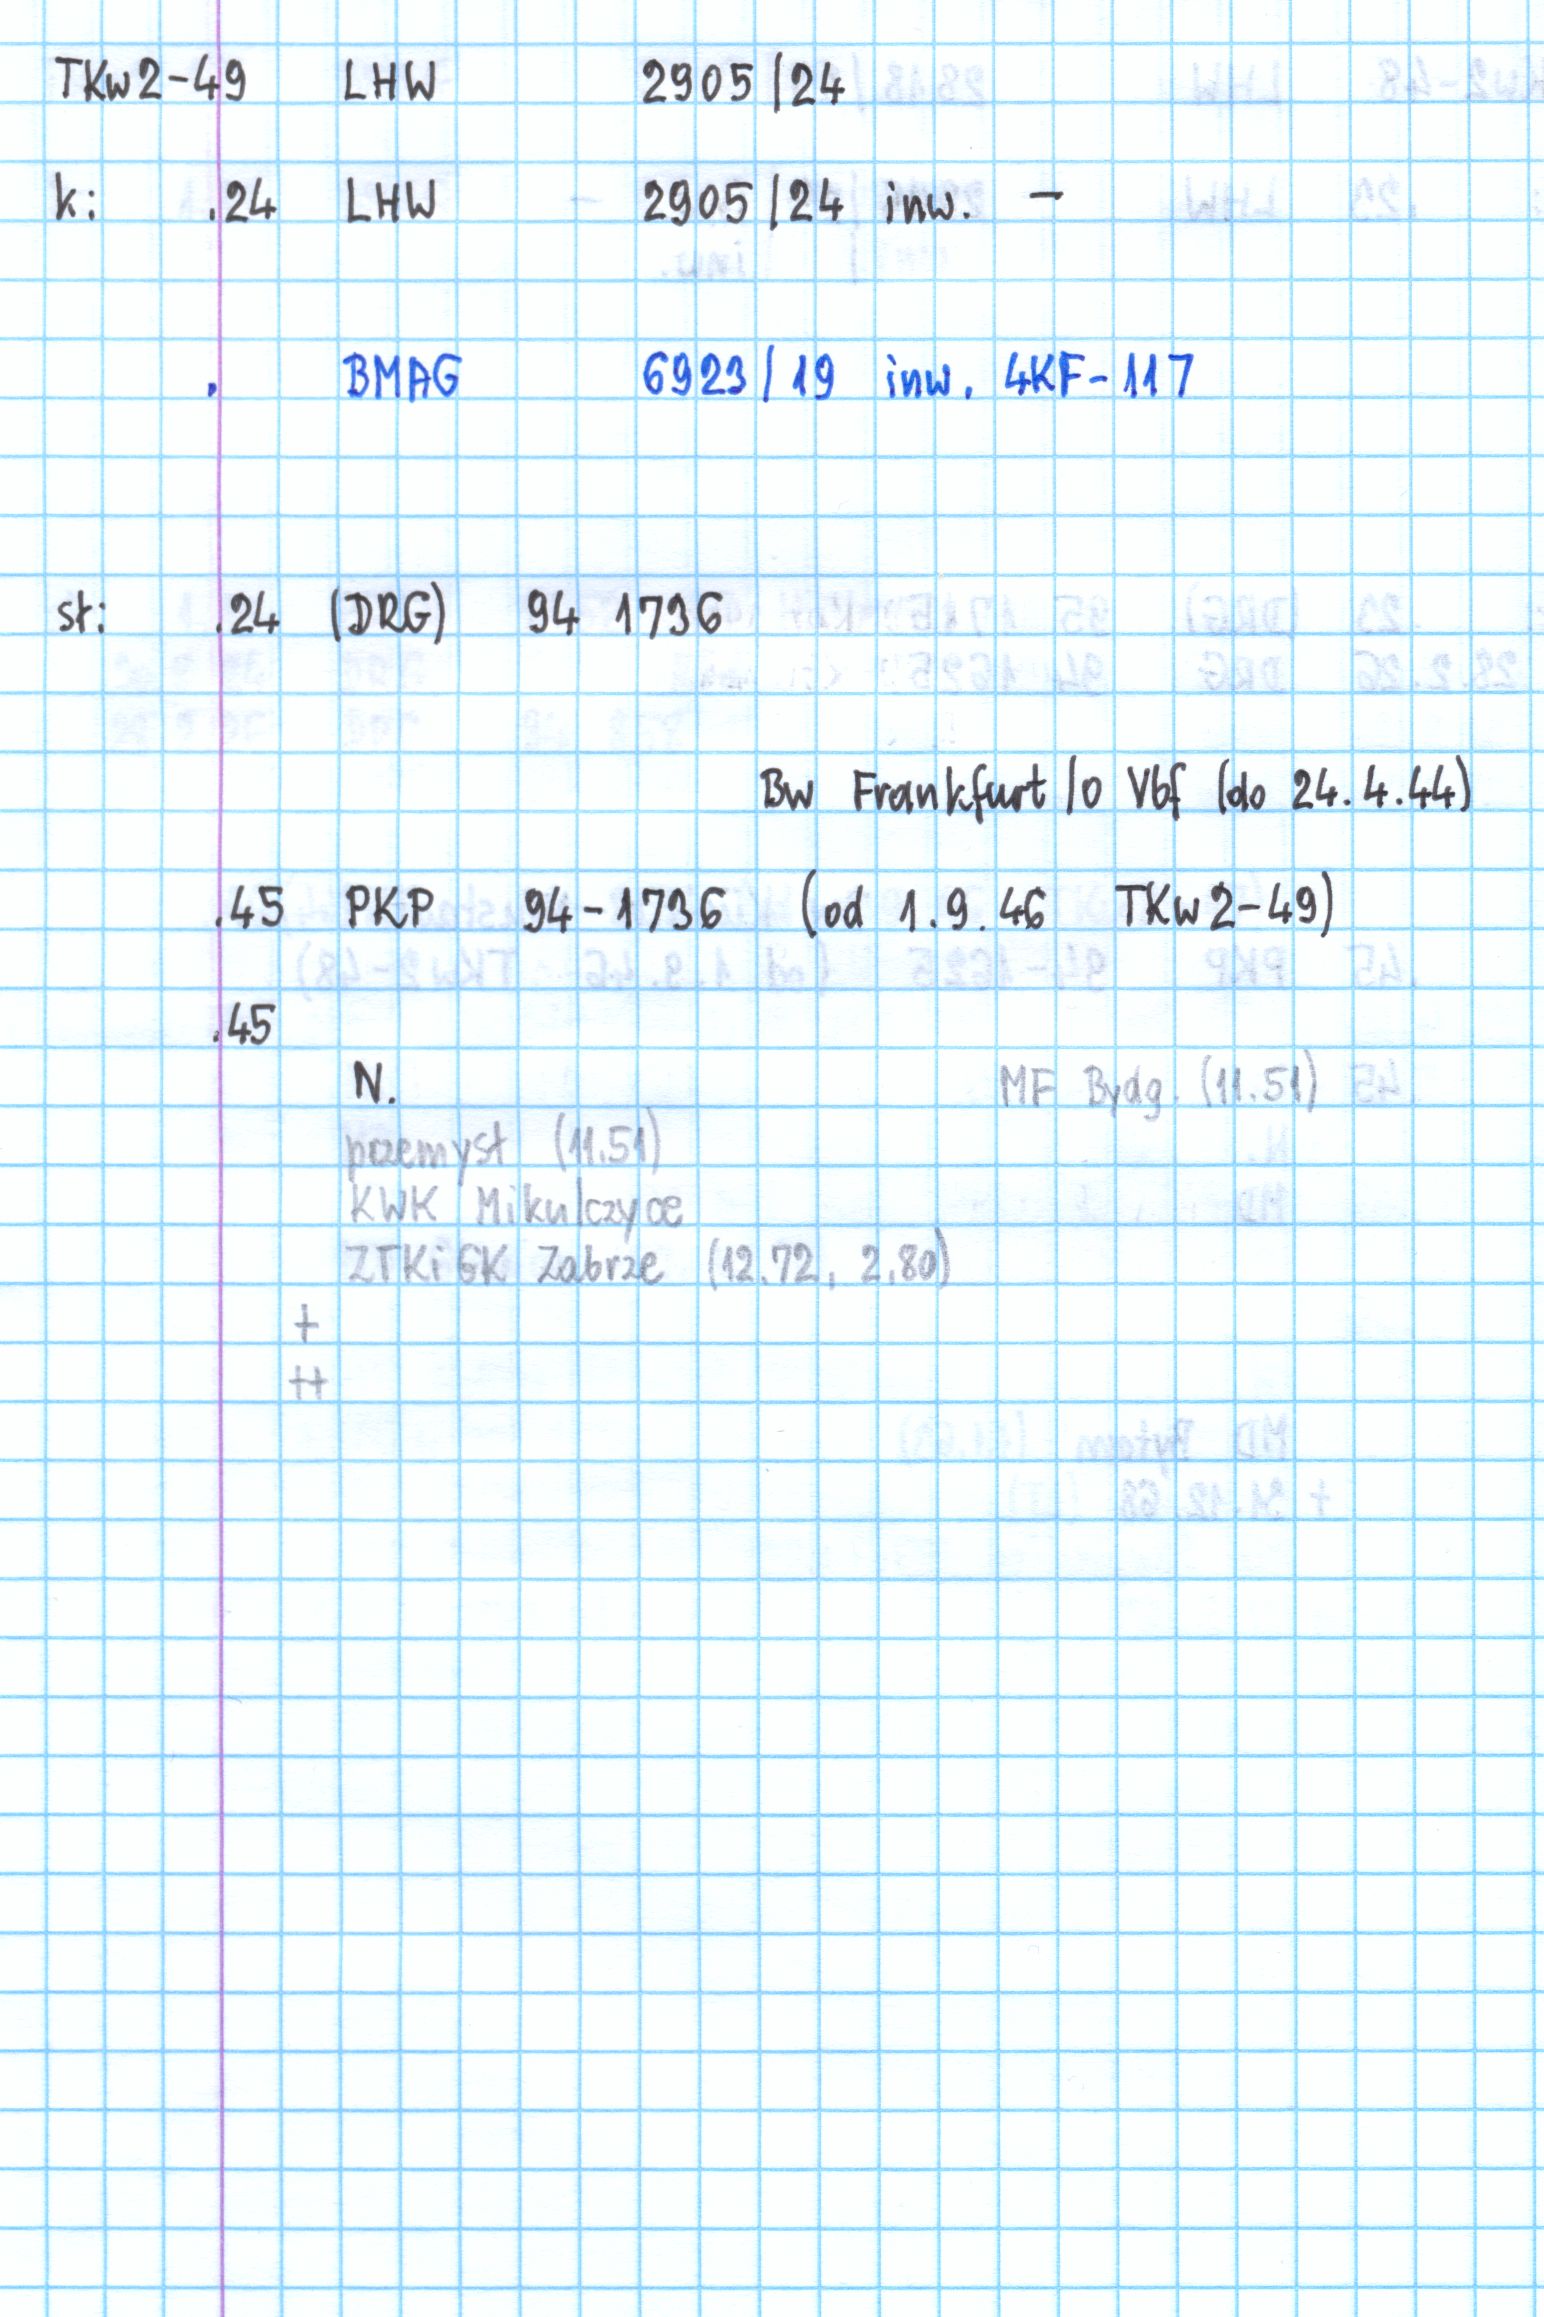 TKw2-49 LHW 2905/24
k: .24 LHW 2905/24 inw. -
. BMAG 6923/19 inw. 4KF-117
st: .24 (DRG) 94 1736
Bw Frankfurt/O Vbf (do 24.4.44)
.45 PKP 94-1736 (od 1.9.46 TKw2-49)
.45
N. MF Bydg. (11.51)
przemysł (11.51)
KWK Mikulczyce
ZTKiGK Zabrze (12.72, 2.80)
+
++